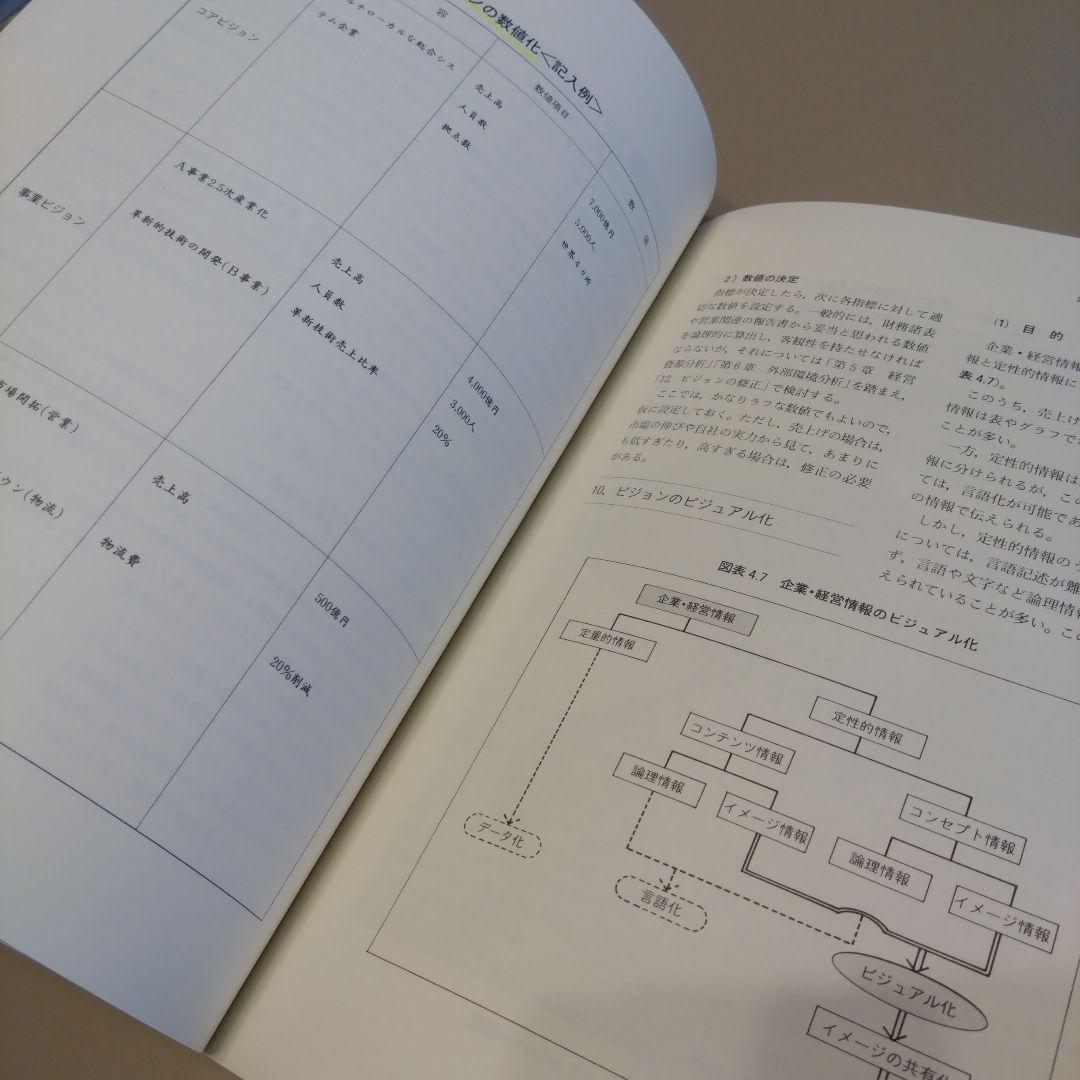 ンの数値化<記入例>
容
数値項目
数 値
コアビジョン
ルチローカルな総合シス
テム企業
売上高
人員数
拠点数
7,000億円
5,000人
世界4カ所
事業ビジョン
A事業2.5次産業化
革新的技術の開発(B事業)
売上高
人員数
革新技術売上比率
4,000億円
3,000人
20%
市場開拓(営業)
ウン(物流)
売上高
物流費
500億円
20%削減
2)数値の決定
指標が決定したら,次に各指標に対して適
切な数値を設定する。一般的には,財務諸表
や営業関連の報告書から妥当と思われる数値
を論理的に算出し,客観性を持たせなければ
ならないが,それについては「第5章 経営
資源分析」「第6章 外部環境分析」を踏まえ,
「12.ビジョンの修正」で検討する。
ここでは,かなりラフな数値でもよいので,
仮に設定しておく。ただし,売上げの場合は,
市場の伸びや自社の実力から見て,あまりに
も低すぎたり,高すぎる場合は,修正の必要
がある。
10.ビジョンのビジュアル化
(1) 目 的
企業・経営情報
報と定性的情報に
表4.7)。
このうち,売上げ
情報は表やグラフで
ことが多い。
一方,定性的情報は
報に分けられるが,この
ては,言語化が可能であ
の情報で伝えられる。
しかし,定性的情報の
については,言語記述が難
ず,言語や文字など論理情報
えられていることが多い。この
図表4.7 企業・経営情報のビジュアル化
企業・経営情報
定量的情報
定性的情報
コンテンツ情報
論理情報
イメージ情報
コンセプト情報
論理情報
イメージ情報
データ化
言語化
ビジュアル化
イメージの共有化